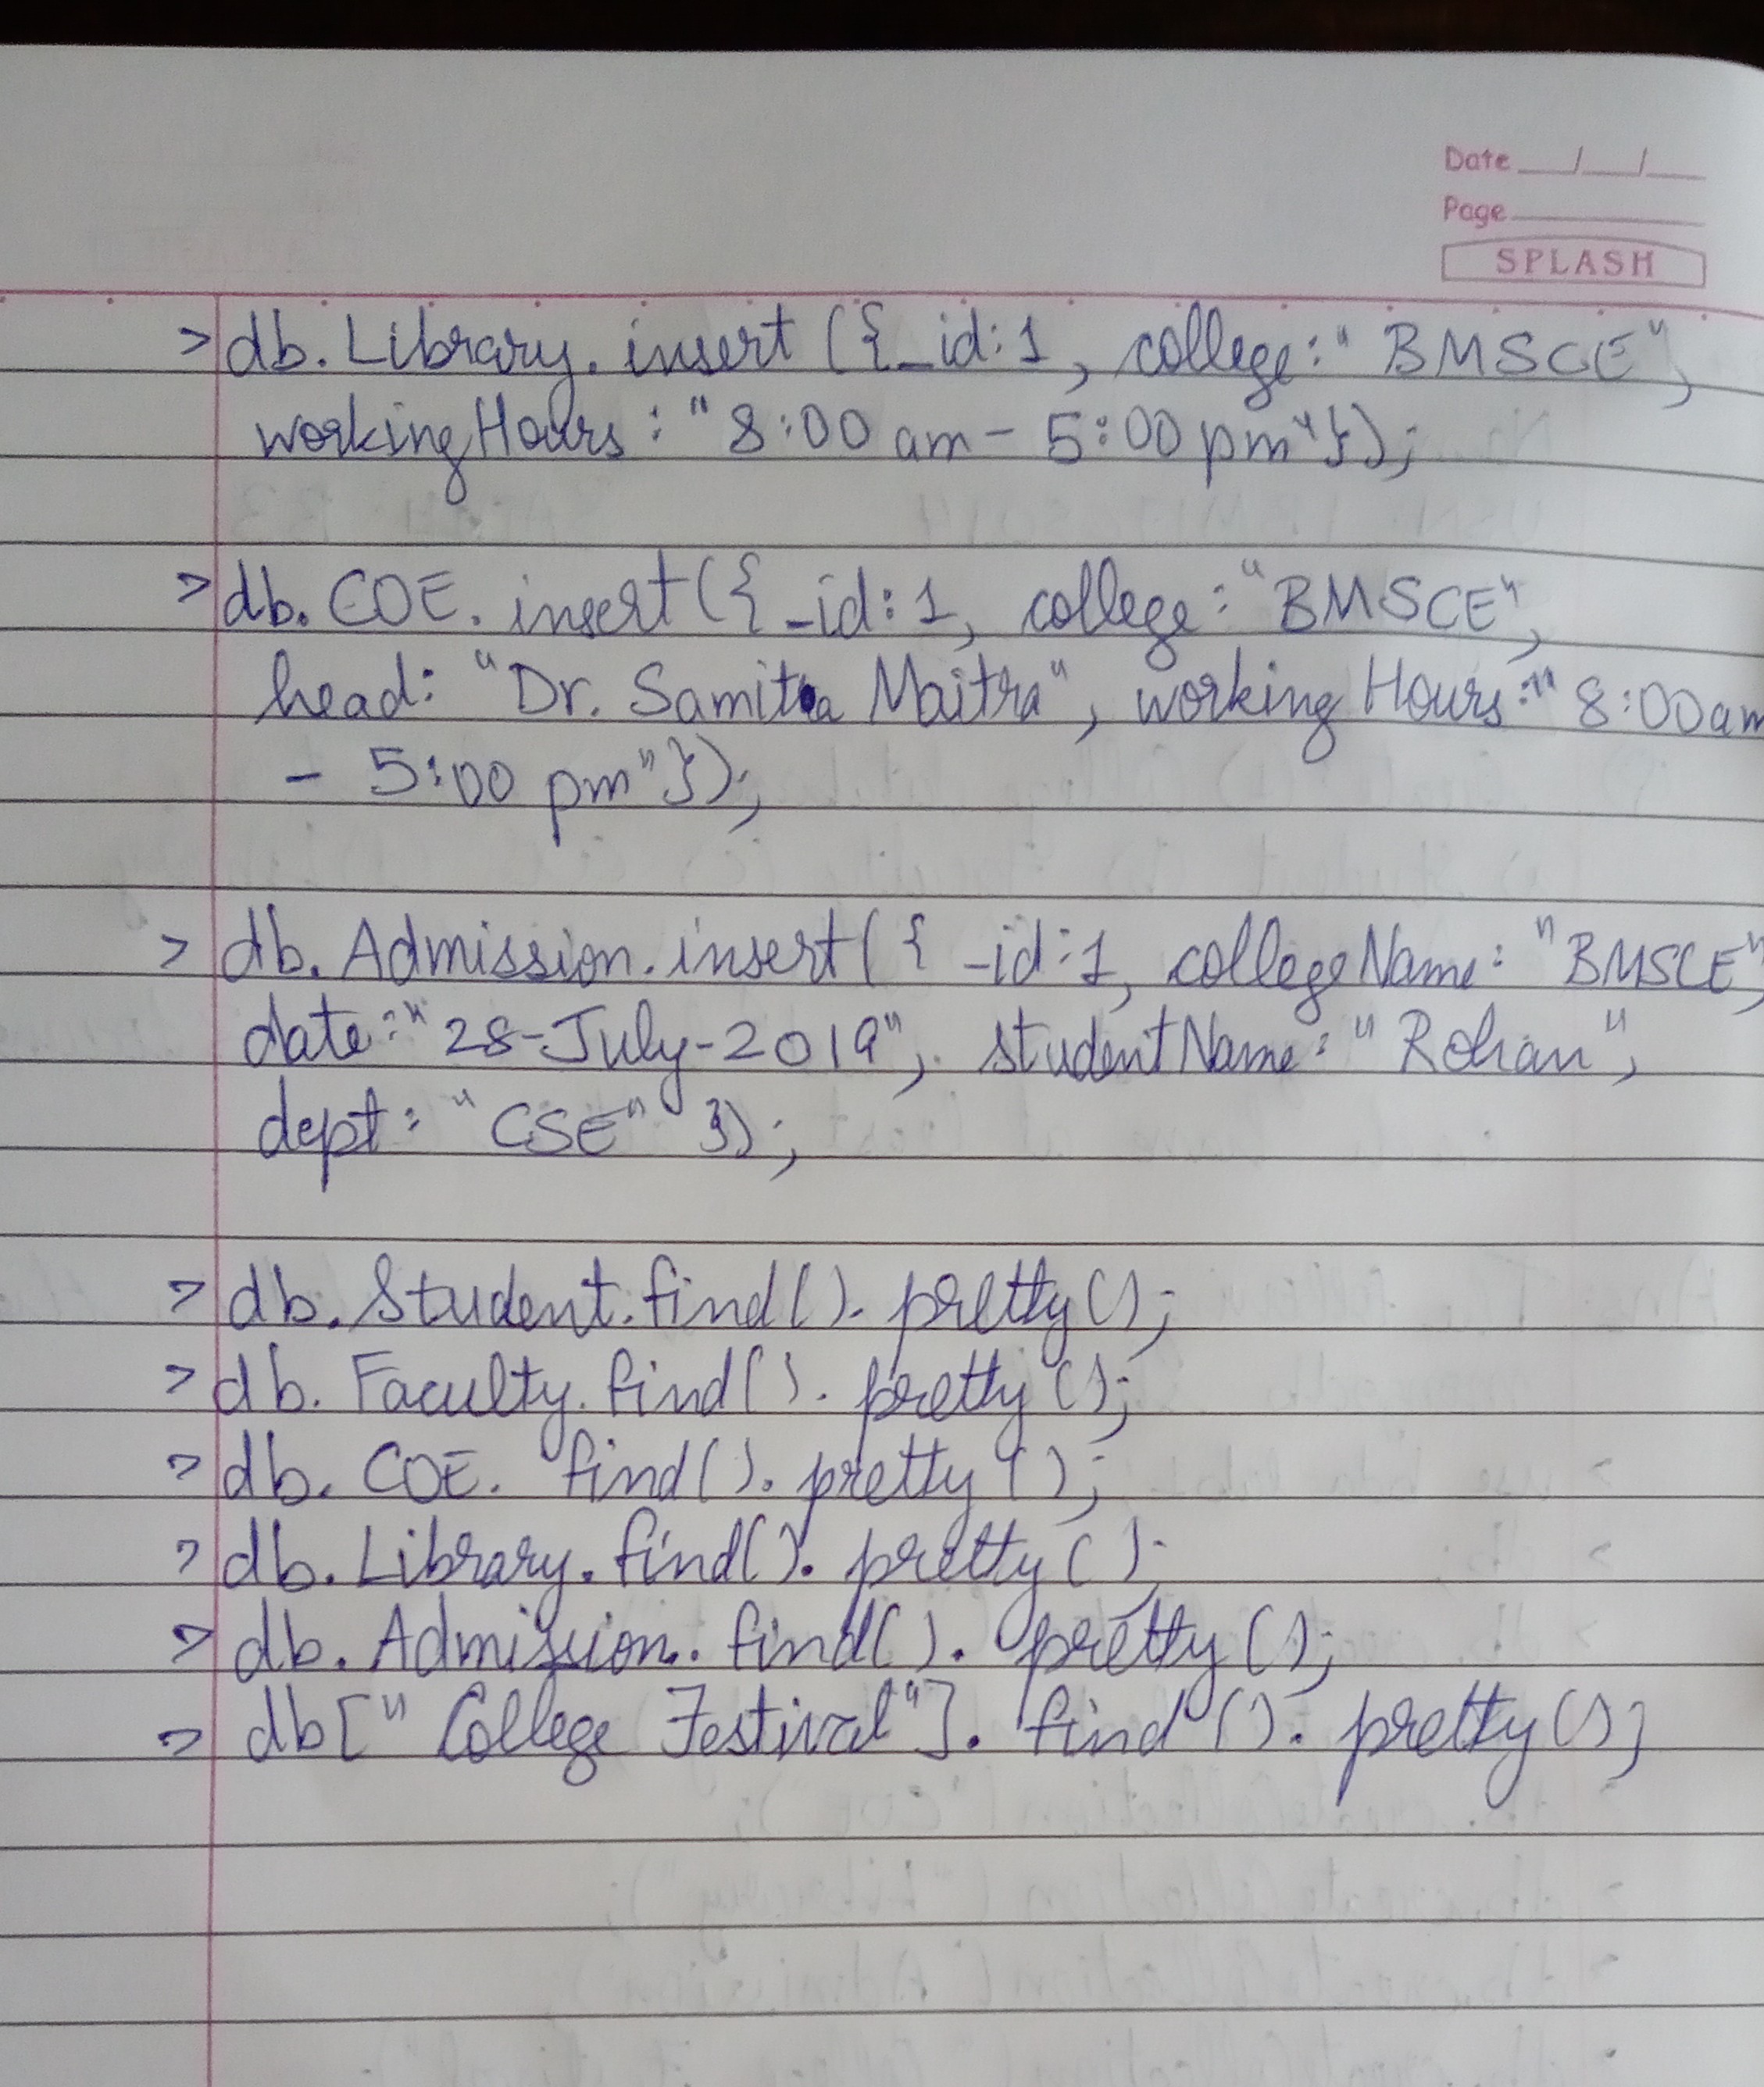 Date __/__/__
Page ______
SPLASH
> db.Library.insert({_id:1, college:"BMSCE",
workingHours:"8:00 am - 5:00 pm"});
> db.COE.insert({_id:1, college:"BMSCE",
head: "Dr. Samita Maitra", workingHours:"8:00am
- 5:00 pm"});
> db.Admission.insert({_id:1, collegeName:"BMSCE",
date:"28-July-2019", studentName:"Rohan",
dept:"CSE"});
> db.Student.find().pretty();
> db.Faculty.find().pretty();
> db.COE.find().pretty();
> db.Library.find().pretty();
> db.Admission.find().pretty();
> db["College Festival"].find().pretty();